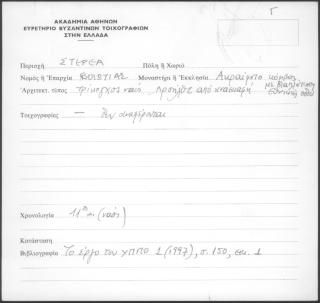 Γ
ΑΚΑΔΗΜΙΑ ΑΘΗΝΩΝ
ΕΥΡΕΤΗΡΙΟ ΒΥΖΑΝΤΙΝΩΝ ΤΟΙΧΟΓΡΑΦΙΩΝ
ΣΤΗΝ ΕΛΛΑΔΑ
Περιοχή ΣΤΕΡΕΑ Πόλη ή Χωριό
Νομός ή Ἐπαρχία ΒΟΙΩΤΙΑΣ Μοναστήρι ή Ἐκκλησία Ακραίφνιο κόμβος
Ἀρχιτεκτ. τύπος τρίκογχος ναός. Προήλθε από ανασκαφή
με διαπλάτυνση
εθνικής οδού
Τοιχογραφίες — δεν αναφέρονται
Χρονολογία 11ος αι (ναός)
Κατάσταση
Βιβλιογραφία Το έργο του ΥΠΠΟ 1 (1997), σ. 150, εικ. 1